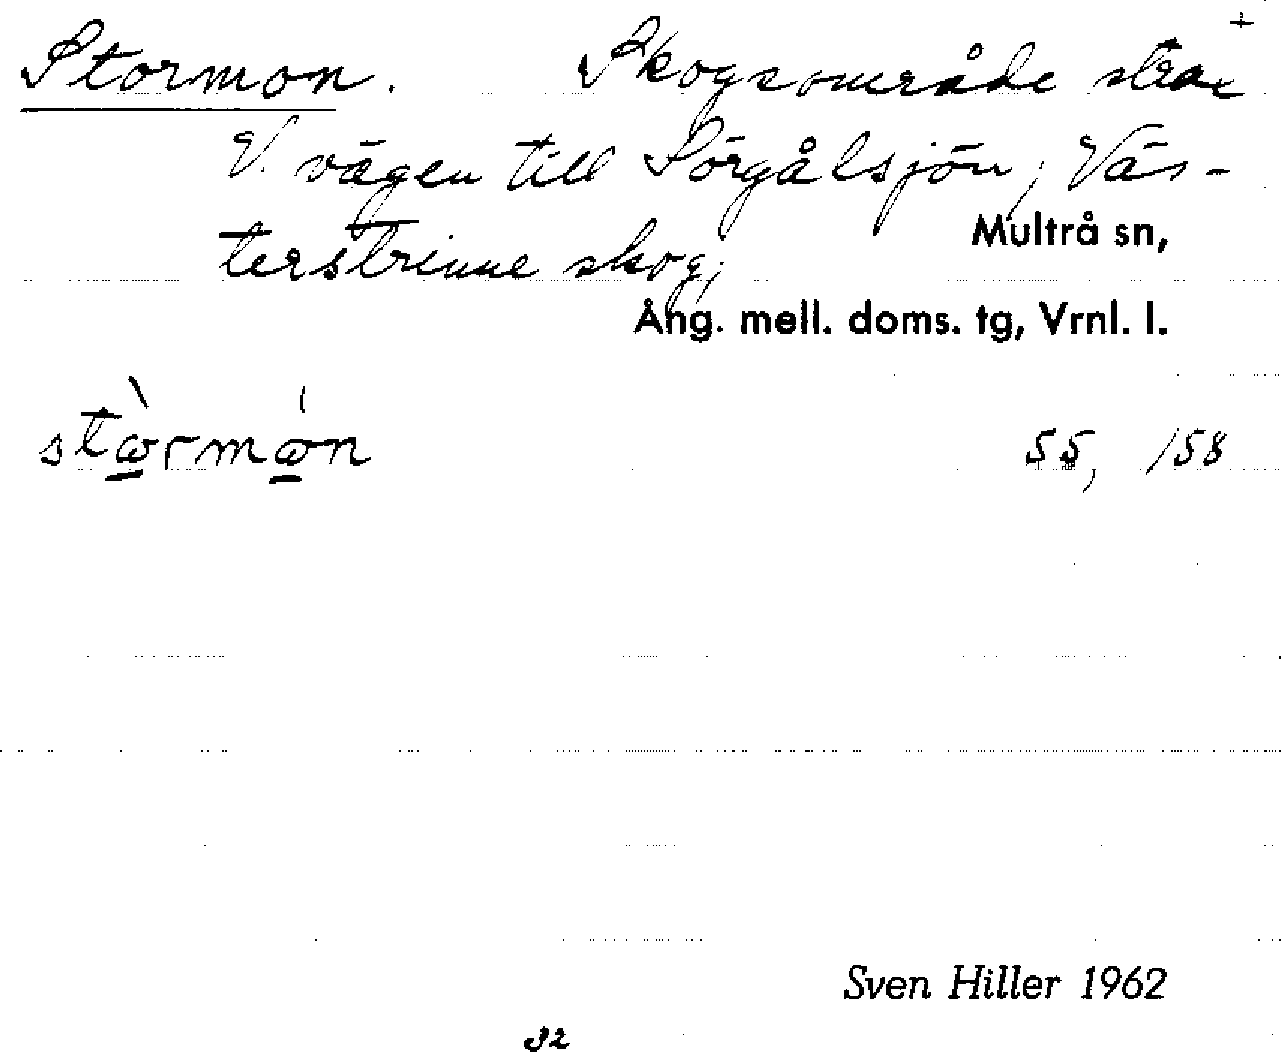 Stormon. Skogsområde strax +
V. vägen till Sörgålsjön; Väs-
terstrinne skog;
Multrå sn,
Ång. mell. doms. tg, Vrnl. l.
stòrmón 55, 158
Sven Hiller 1962
32